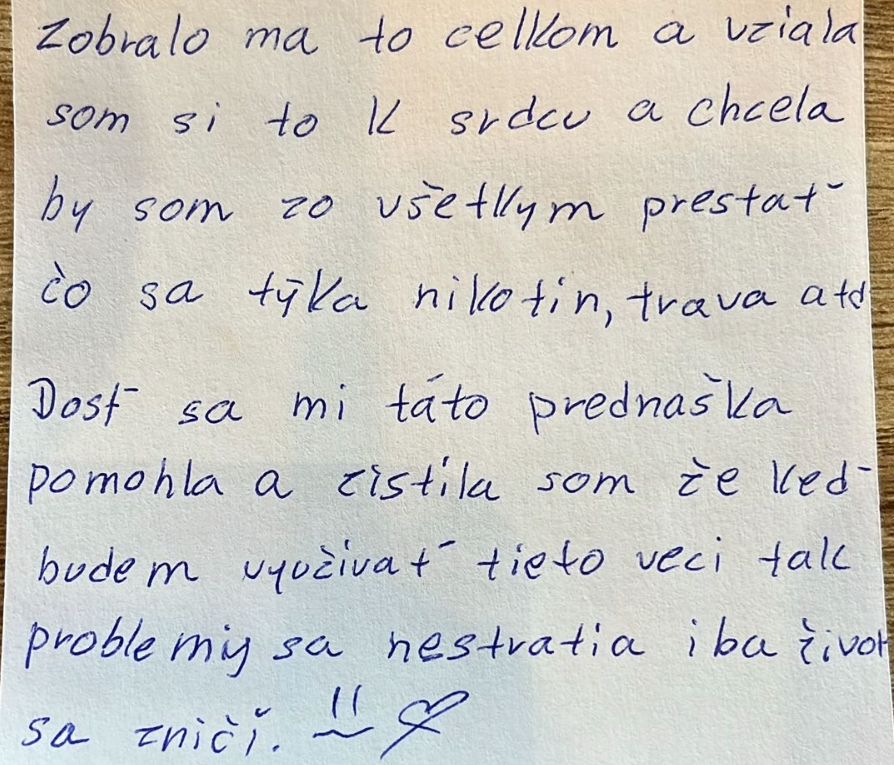 Zobralo ma to celkom a vziala
som si to k srdcu a chcela
by som zo všetkym prestať
čo sa týka nikotin, trava atď
Dosť sa mi táto prednaška
pomohla a zistila som že keď
budem vyučivať tieto veci tak
problemy sa nestratia iba život
sa zničí.